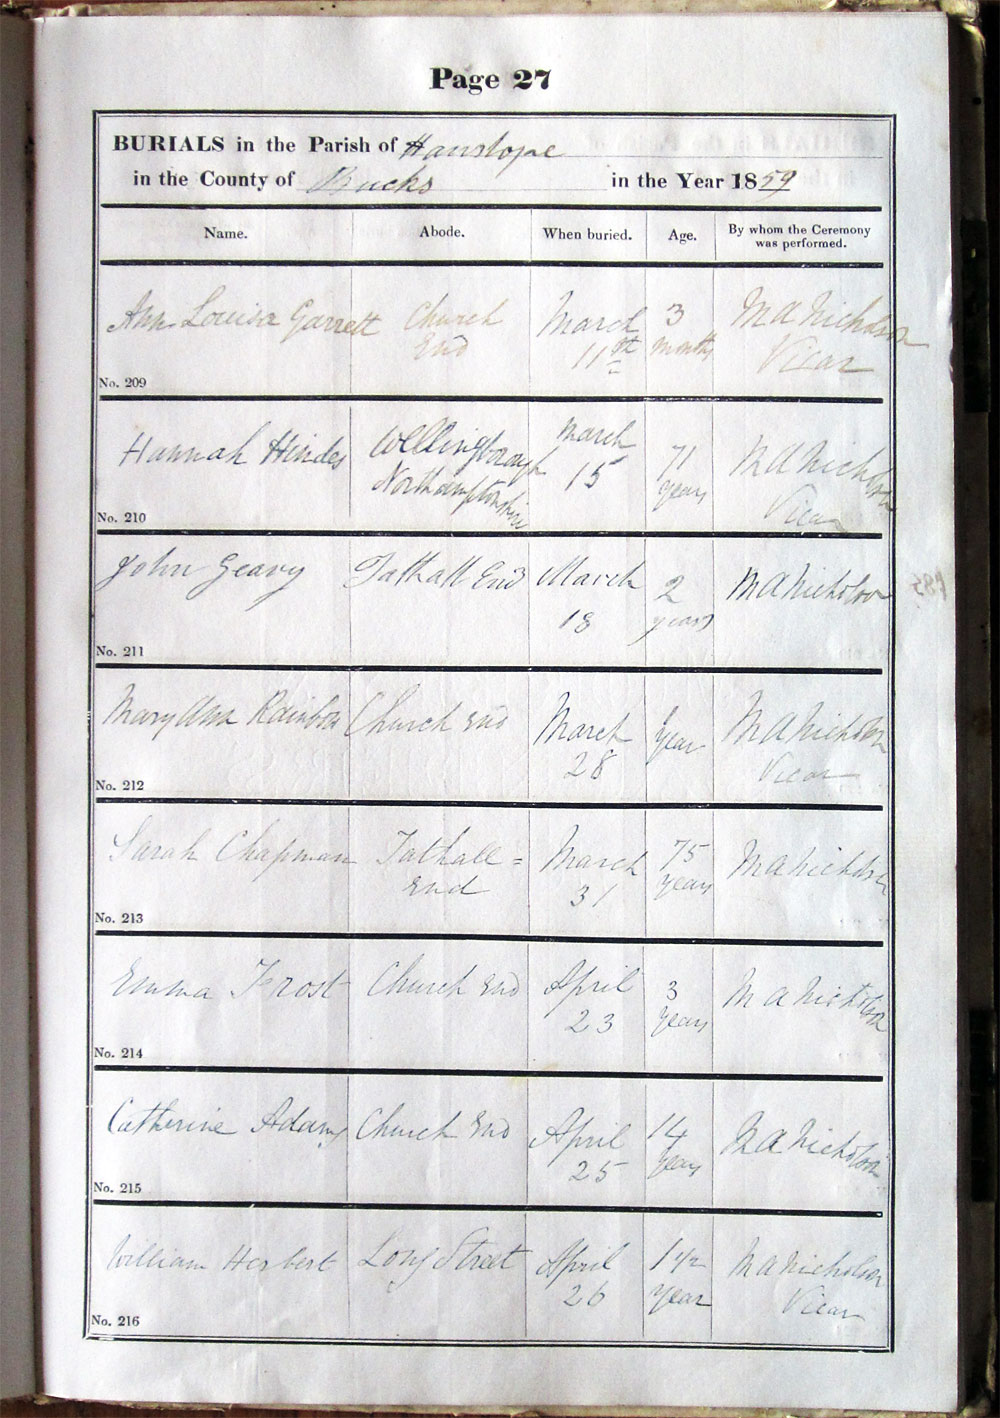 Page 27
BURIALS in the Parish of Hanslope
in the County of Bucks in the Year 1859
Name. Abode. When buried. Age. By whom the Ceremony
was performed.
Ann Louisa Garrett Church March 3 M A Nicholson
End 11th months Vicar
No. 209
Hannah Hindes Wellingborough March 71 M A Nicholson
Northamptonshire 15 years Vicar
No. 210
John Geary Tathall End March 2 M A Nicholson
18 years
No. 211
Mary Ann Rainbow Church End March Year M A Nicholson
28 Vicar
No. 212
Sarah Chapman Tathall = March 75 M A Nicholson
End 31 years
No. 213
Emma Frost Church End April 3 M A Nicholson
23 years
No. 214
Catherine Adams Church End April 14 M A Nicholson
25 years
No. 215
William Herbert Long Street April 1 1/2 M A Nicholson
26 year Vicar
No. 216